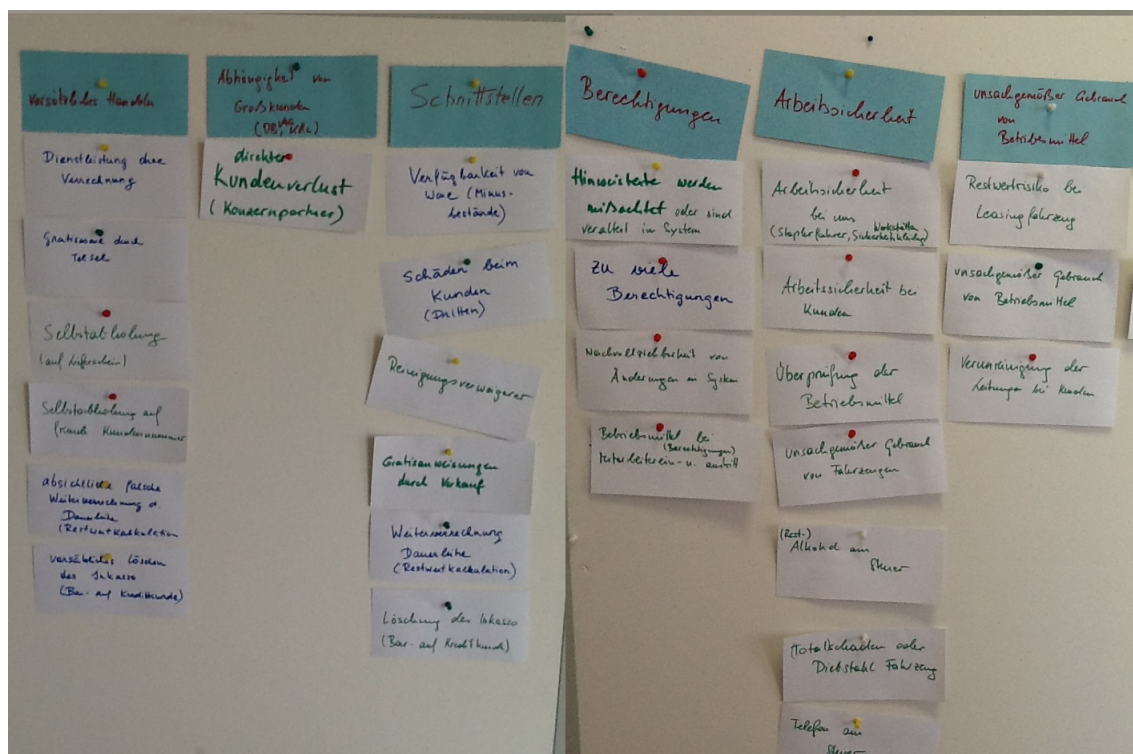 vorsätzliches Handeln
Dienstleistung ohne
Verrechnung
Gratisware durch
Selbstabholung
(auf Lieferschein)
Selbstabholung auf
fremde Kundennummer
absichtliche falsche
Weiterverrechnung d.
Dauerleihe
(Restwertkalkulation
vorsätzliches Löschen
des Inkasso
(Bar- auf Kreditkunde)
Abhängigkeit von
Großkunden
direkter
Kundenverlust
(Konzernpartner)
Schnittstellen
Verfügbarkeit von
Ware (Minus-
bestände)
Schäden beim
Kunden
(Dritten)
Reinigungsverweigerer
Gratisanweisungen
durch Verkauf
Weiterverrechnung
Dauerleihe
(Restwertkalkulation)
Löschung des Inkasso
(Bar- auf Kreditkunde)
Berechtigungen
Hinweistexte werden
mißachtet oder sind
veraltet im System
Zu viele
Berechtigungen
Nachvollziehbarkeit von
Änderungen im System
Betriebsmittel bei
(Berechtigungen)
Mitarbeiterein- u. austritt
Arbeitssicherheit
Arbeitssicherheit
bei uns
Werkstätten
(Staplerfahrer, Sicherheitskleidung)
Arbeitssicherheit bei
Kunden
Überprüfung der
Betriebsmittel
unsachgemäßer Gebrauch
von Fahrzeugen
(Rest-)
Alkohol am
Steuer
Totalschaden oder
Diebstahl Fahrzeug
Telefon am
Steuer
unsachgemäßer Gebrauch
von
Betriebsmittel
Restwertrisiko bei
Leasingfahrzeug
unsachgemäßer Gebrauch
von Betriebsmittel
Verunreinigung der
Leitungen bei Kunden